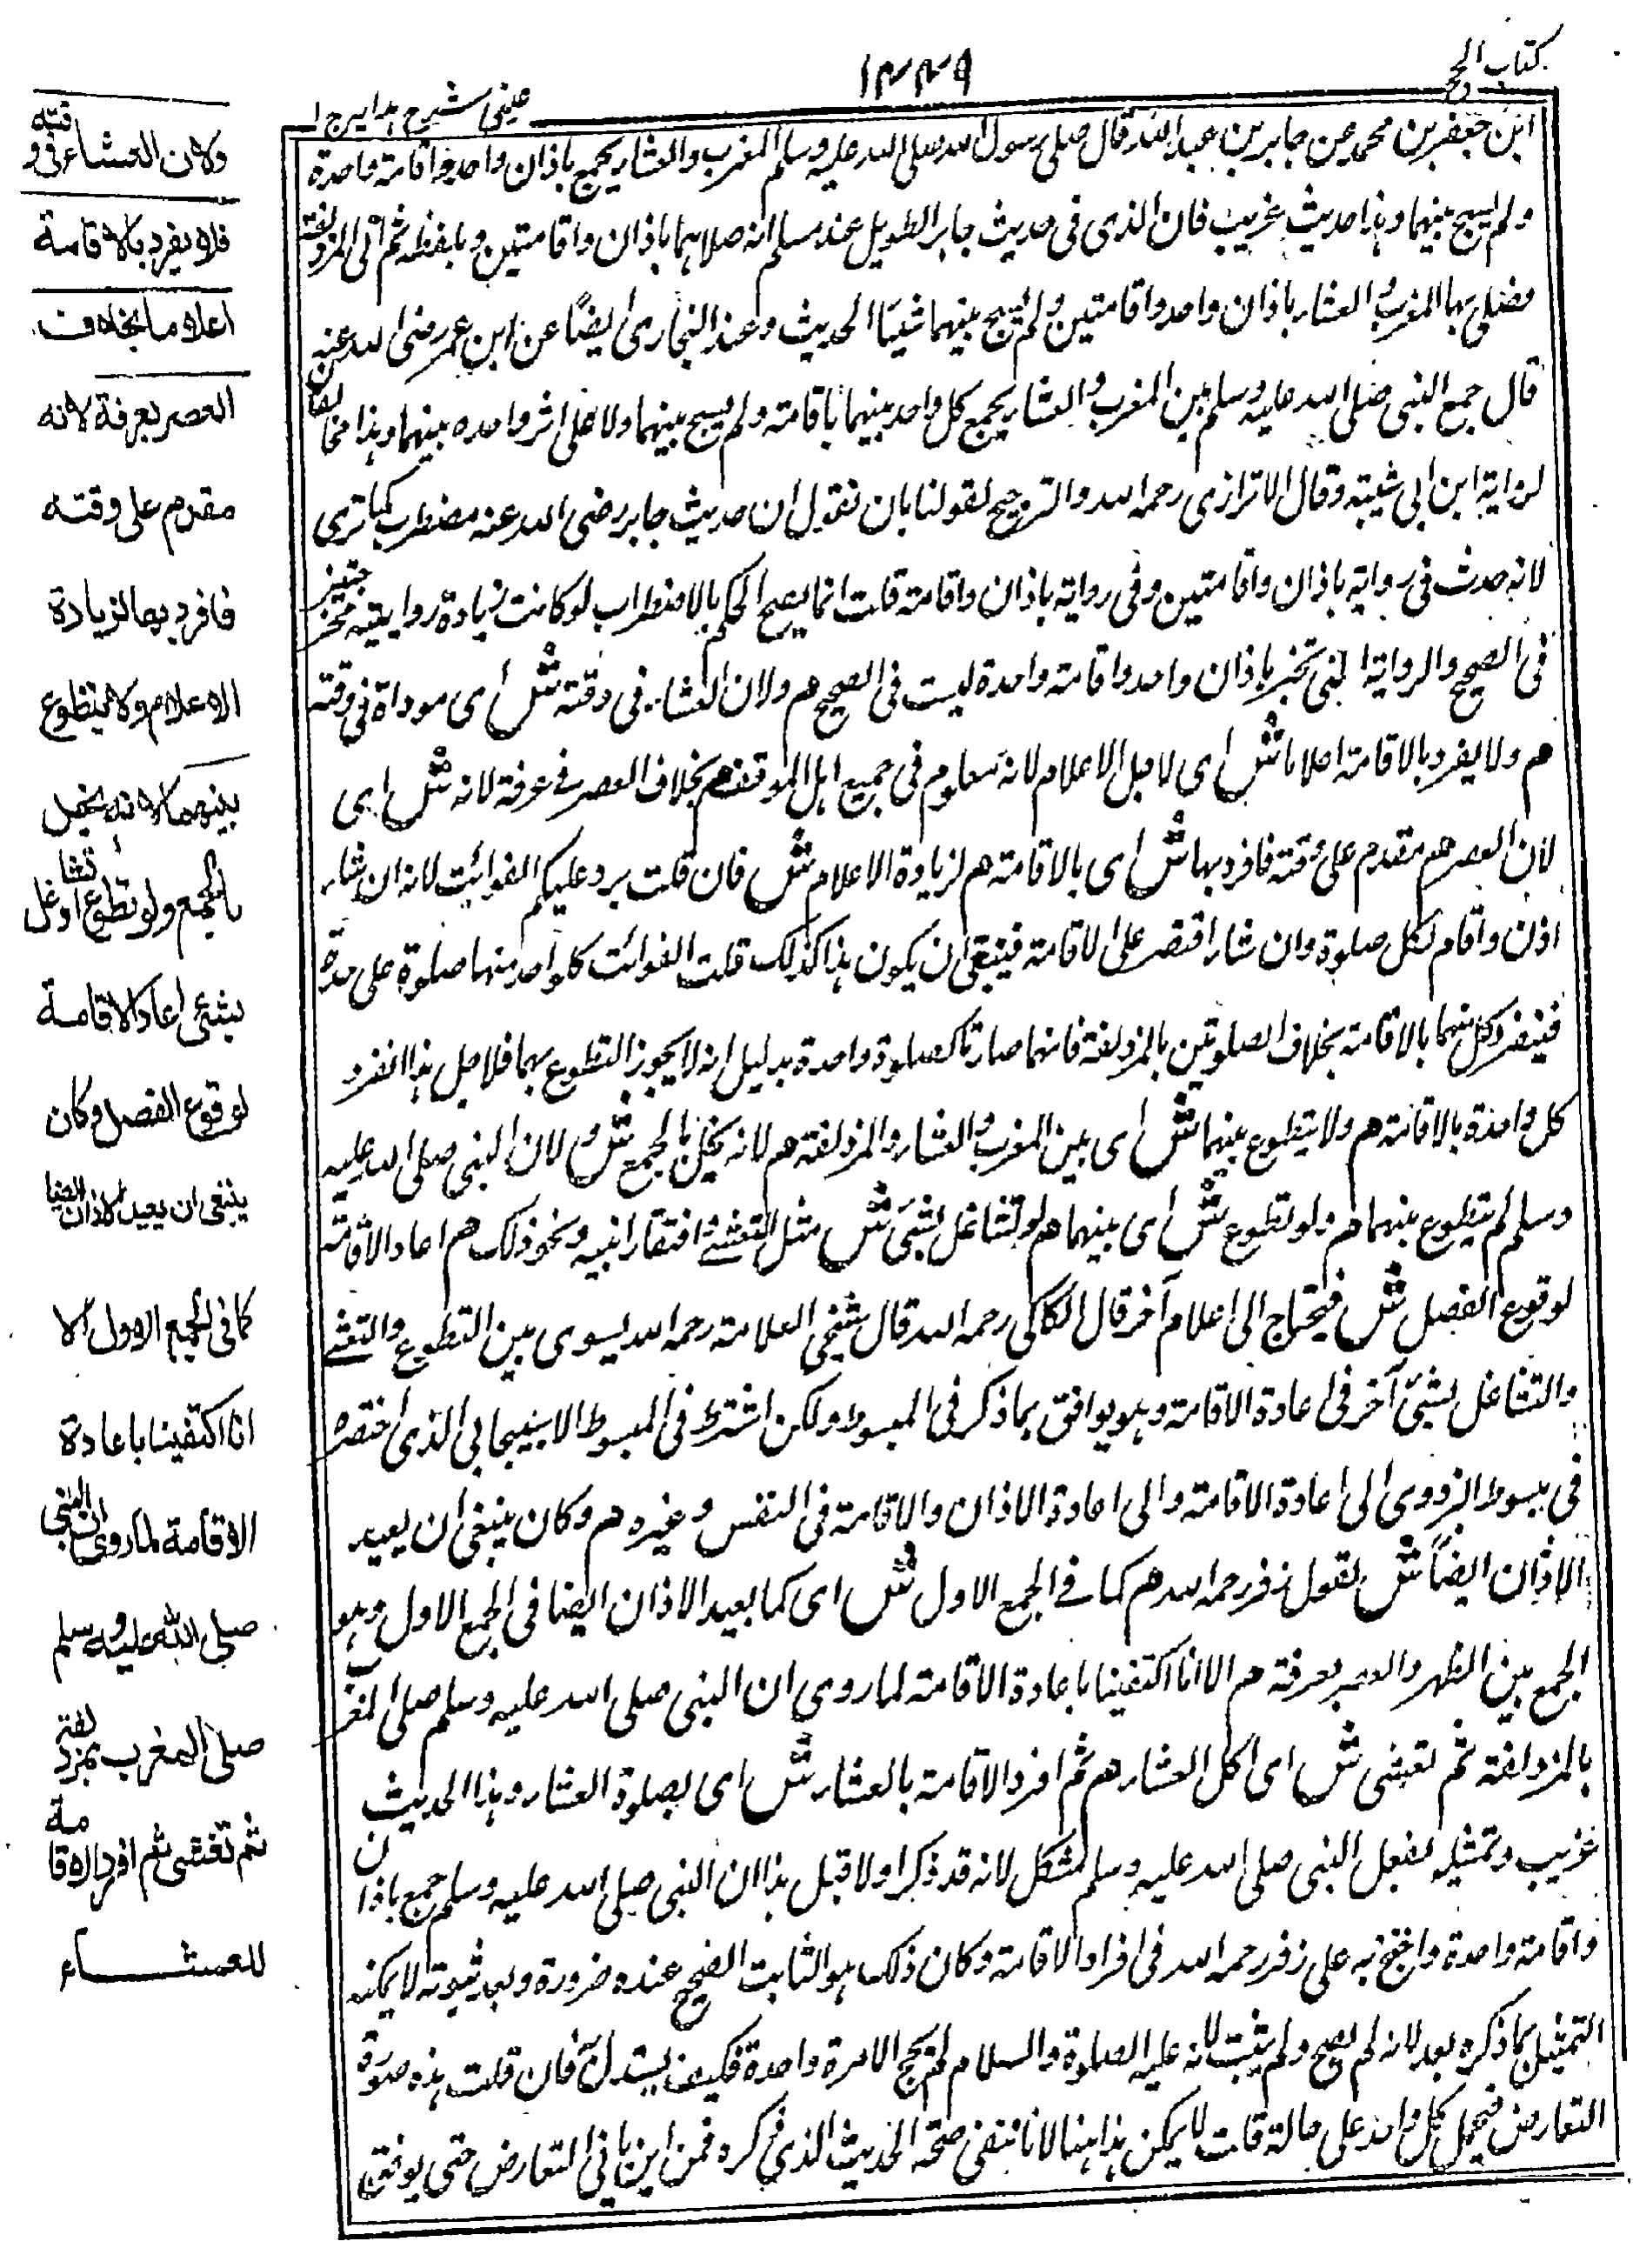 كتاب الحج
١٤٤٩
عينى شرح هدايه ج ١
ابن جعفر بن محمد عن جابر بن عبد الله قال صلى رسول الله صلى الله عليه وسلم المغرب والعشاء بجمع باذان واحد واقامة واحدة
ولم يسبح بينهما وهذا حديث غريب فان الذى فى حديث جابر الطويل عند مسلم انه صلاهما باذان واقامتين وبلفظه ثم اتى المزدلفة
فصلى بها المغرب والعشاء باذان واحد واقامتين ولم يسبح بينهما شيئا الحديث وعند البخارى ايضًا عن ابن عمر رضى الله عنه
قال جمع النبى صلى الله عليه وسلم بين المغرب والعشاء بجمع كل واحد بينهما باقامة ولم يسبح بينهما ولا على اثر واحده بينهما وهذا مخالفا
لرواية ابن ابى شيبة وقال الاترازى رحمه الله والترجيح لقولنا بان نقول ان حديث جابر رضى الله عنه مضطرب كما ترى
لانه حدث فى رواية باذان واقامتين وفى رواية باذان واقامة قلت انما يصح الحكم بالاضطراب لو كانت زيادة روايتيه
فى الصحيح والرواية التى تخبر باذان واحد واقامة واحدة ليست فى الصحيح م ولان العشاء فى وقته ش اى موداة فى وقته
م ولا يفرد بالاقامة اعلاما ش اى لاجل الاعلام لانه معلوم فى جميع اهل الموقف م بخلاف العصر فى عرفة لانه ش اى
لان العصر م مقدم على وقته فافرد بها ش اى بالاقامة م لزيادة الاعلام ش فان قلت يرد عليكم الفوائت لانه ان شاء
اذن واقام لكل صلوة وان شاء اقتصر على الاقامة فينبغى ان يكون هذا كذلك قلت الفوائت كل واحد منها صلوة على حدة
فينفرد كل منهما بالاقامة بخلاف الصلوتين بالمزدلفة فانهما صارتا كصلوة واحدة بدليل انه لا يجوز التطوع بهما فلاجل هذا انفرد
كل واحدة بالاقامة م ولا يتطوع بينهما ش اى بين المغرب والعشاء والمزدلفة م لانه يخل بالجمع ش ولان النبى صلى الله عليه
وسلم لم يتطوع بينهما م ولو تطوع ش اى بينهما م او تشاغل بشئ ش مثل التعشى ونحو ذلك م اعاد الاقامة
لوقوع الفصل ش فيحتاج الى اعلام آخر قال الكاكى رحمه الله قال شيخى العلامة رحمه الله يسوى بين التطوع والتعشى
والتشاغل بشئ آخر فى اعادة الاقامة وهو يوافق بما ذكر فى المبسوط ولكن اشترط فى المبسوط الاسبيجابى الذى اختصره
فى مبسوط البزدوى الى اعادة الاقامة والى اعادة الاذان والاقامة فى النفس وغيره م وكان ينبغى ان يعيد
الاذان ايضاً ش بقول زفر رحمه الله م كما فى الجمع الاول ش اى كما يعيد الاذان ايضا فى الجمع الاول وهو
الجمع بين الظهر والعصر بعرفة م الا انا اكتفينا باعادة الاقامة لما روى ان النبى صلى الله عليه وسلم صلى المغرب
بالمزدلفة ثم تعشى ش اى اكل العشاء م ثم افرد الاقامة بالعشاء ش اى بصلوة العشاء وهذا الحديث
غريب وتمثيله بفعل النبى صلى الله عليه وسلم مشكل لانه قد ذكر اولا قبل هذا ان النبى صلى الله عليه وسلم جمع باذان
واقامة واحدة واحتج به على زفر رحمه الله فى افراد الاقامة وكان ذلك هو الثابت الصحيح عنده ضرورة وبعد ثبوته لا يمكنه
التمثيل بما ذكره بعد لانه لم يصح ولم يثبت لانه عليه الصلوة والسلام لم يحج الا مرة واحدة فكيف يستدل فان قلت هذه صورة
التعارض فيحمل كل واحد على حالة قلت لا يمكن هذا ههنا لانا ننفى صحة الحديث الذى ذكره فمن اين ياتى التعارض حتى يوفق
ولان العشاء فى وقته
فلا يفرد بالاقامة
اعلاما بخلاف
العصر بعرفة لانه
مقدم على وقته
فافرد بها لزيادة
الاعلام ولا يتطوع
بينهما لانه يخل
بالجمع ولو تطوع او تشاغل
بشئ اعاد الاقامة
لوقوع الفصل وكان
ينبغى ان يعيد الاذان ايضا
كما فى الجمع الاول الا
انا اكتفينا باعادة
الاقامة لما روى ان النبى
صلى الله عليه وسلم
صلى المغرب بمزدلفة
ثم تعشى ثم افرد الاقامة
للعشاء